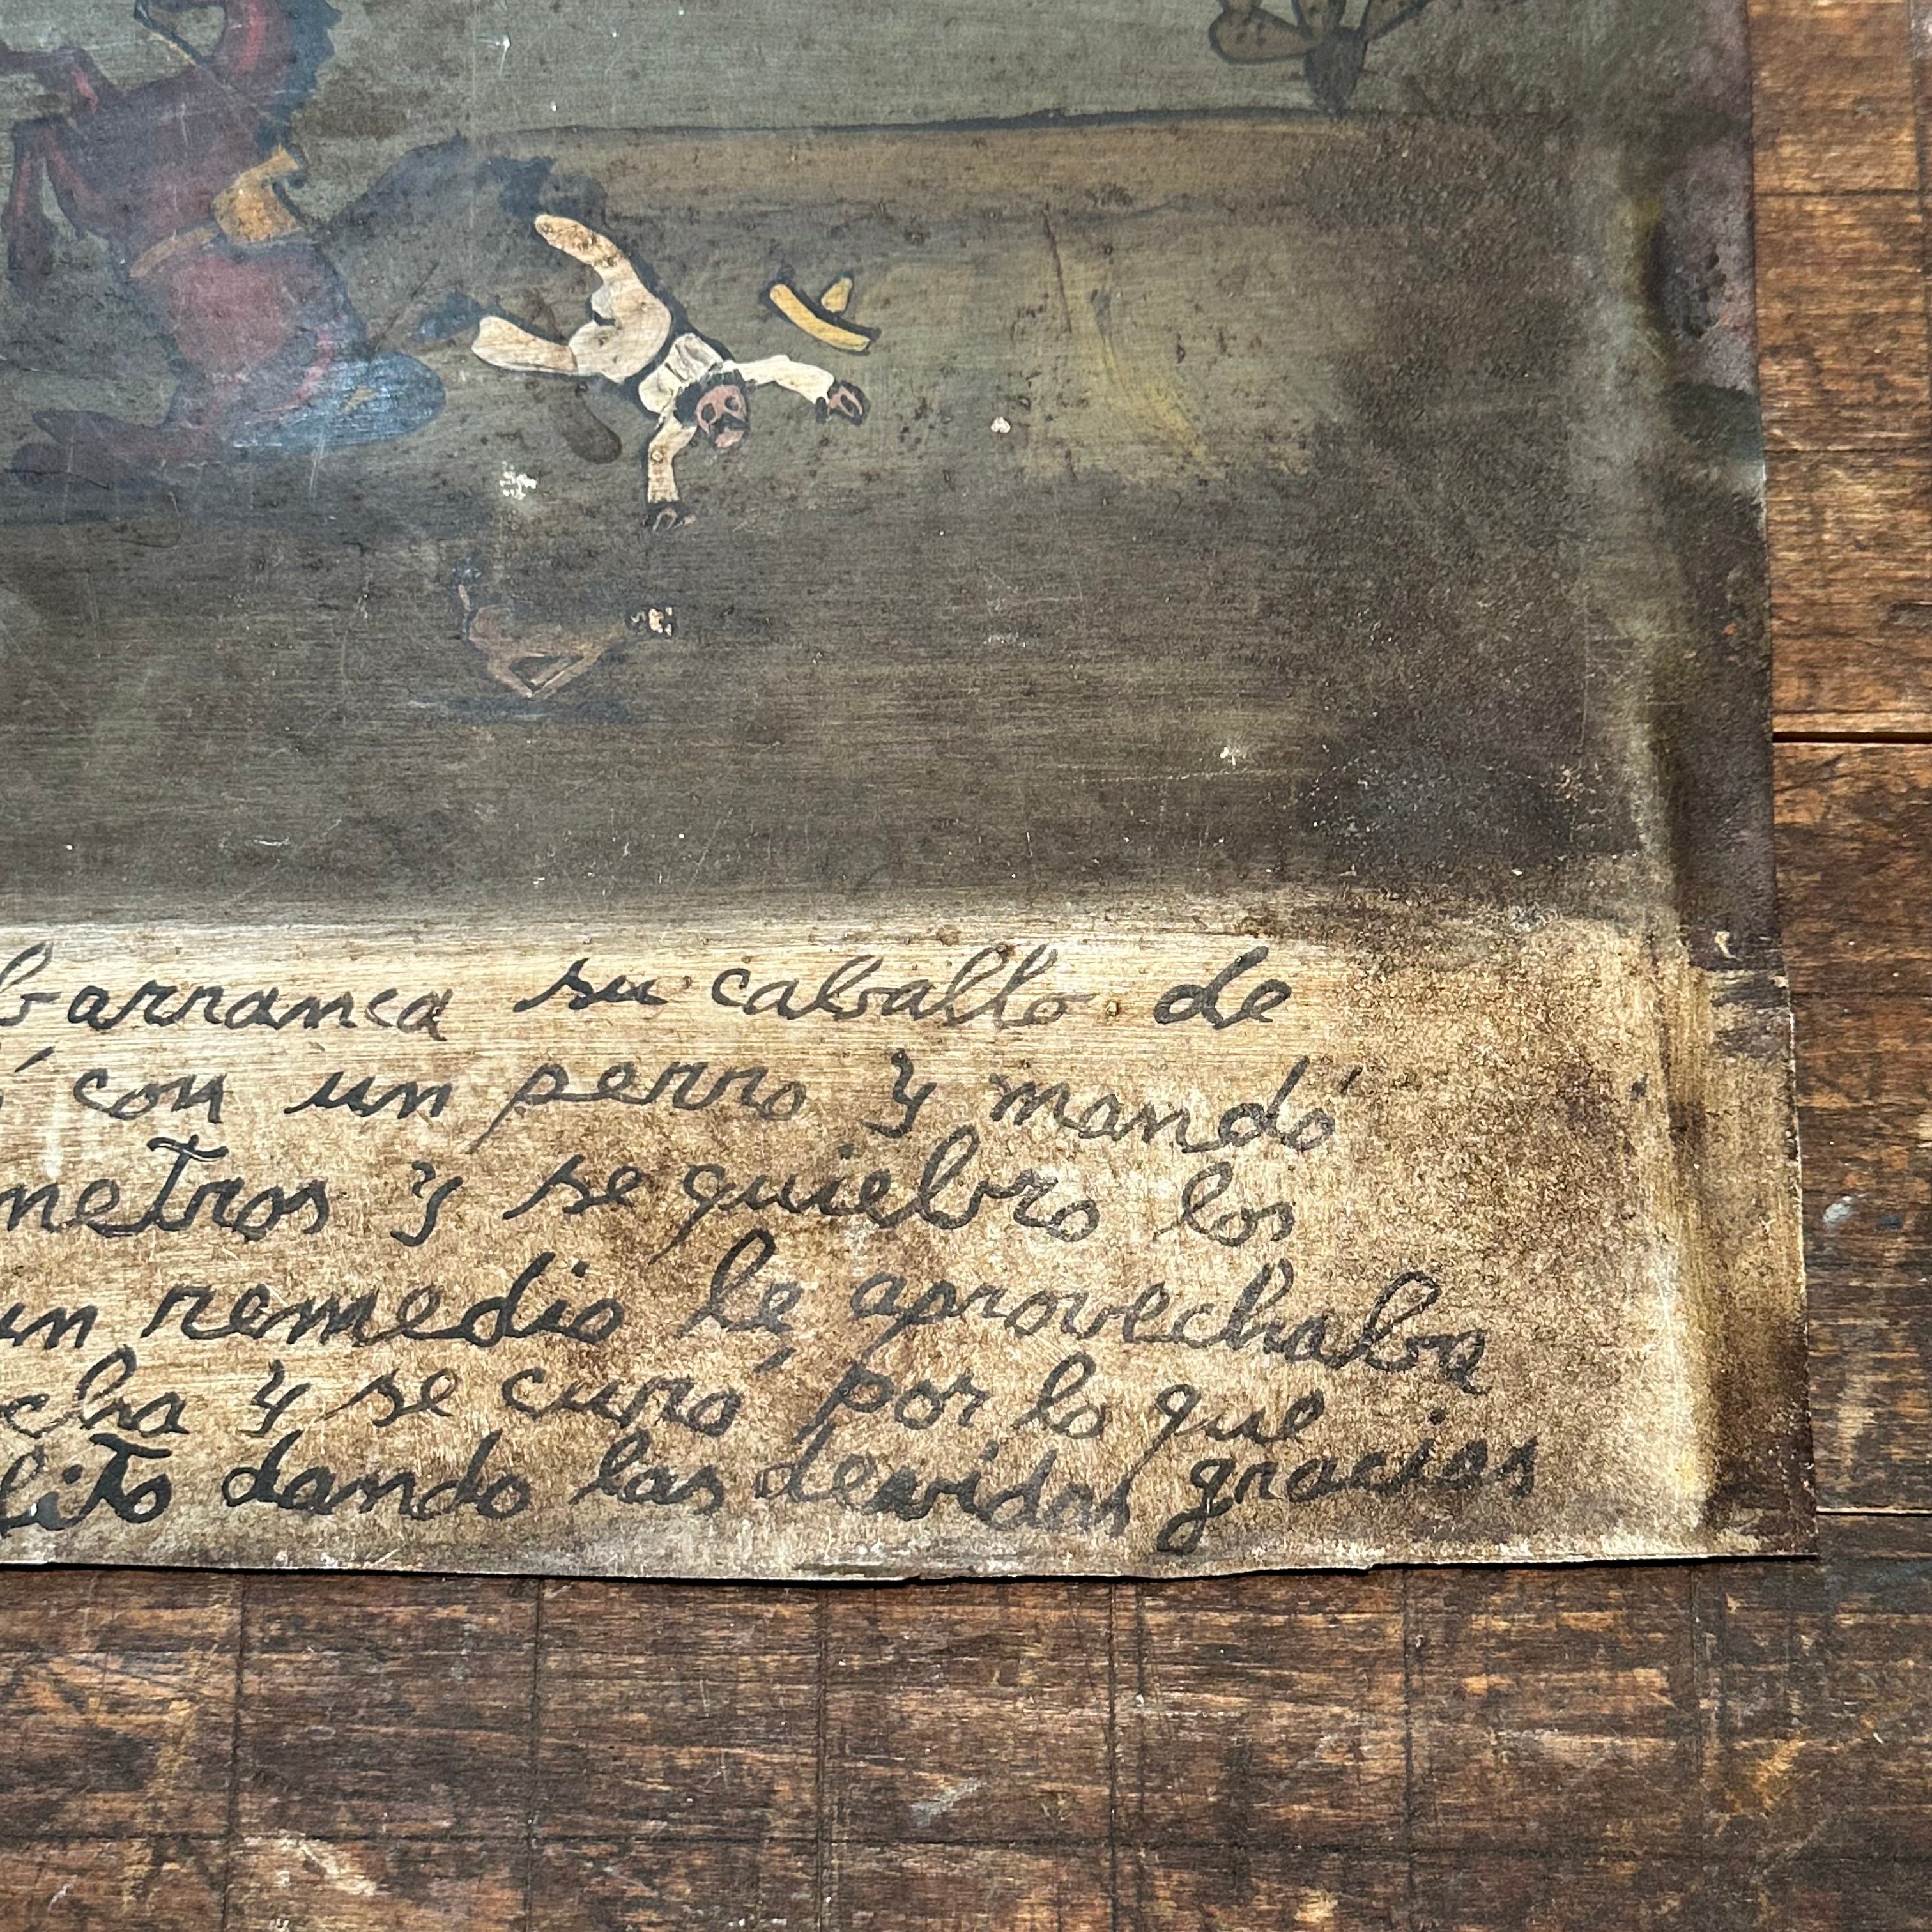 barranca su caballo de
con un perro y mandó
metros y se quiebro los
un remedio le aprovechaba
cha y se curó por lo que
lito dando las devidas gracias